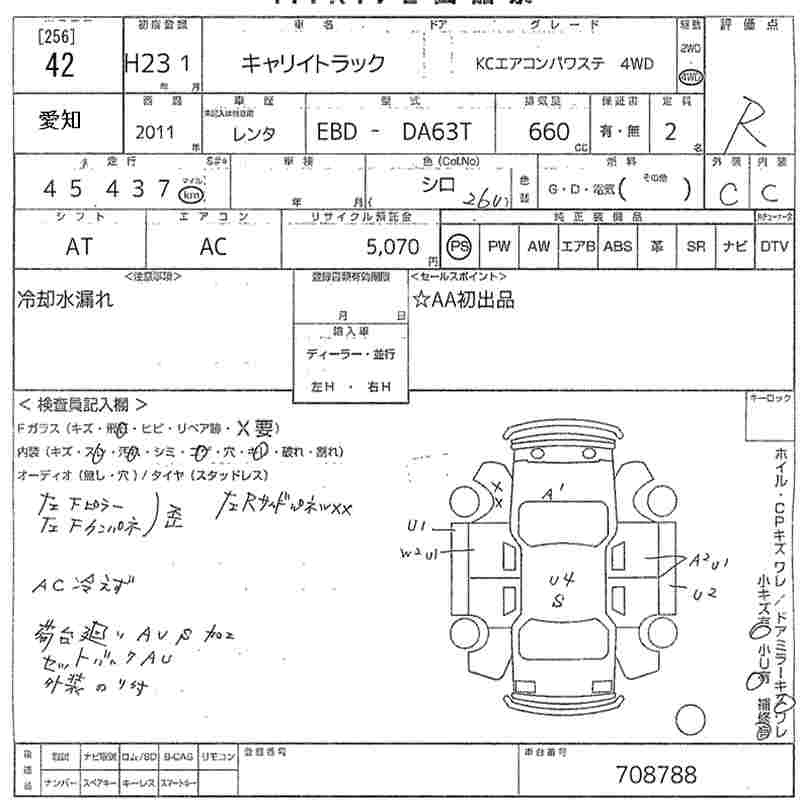 初度登録 車名 ドア グレード 駆動 評価点
[256]
42 H23 1 キャリイトラック KCエアコンパワステ 4WD 2WD 4WD
年 月
愛知 車歴 型式 排気量 保証書 定員 R
2011 年 レンタ EBD - DA63T 660 cc 有・無 2 名
走行 車検 色(Col.No) 燃料 外装 内装
4 5 4 3 7 マイル km 年 月 シロ 26U 色替 G・D・電気( その他 ) C C
シフト エアコン リサイクル預託金 純正装備品
AT AC 5,070 円 PS PW AW エアB ABS 革 SR ナビ DTV
<注意事項> 登録書類有効期限 <セールスポイント>
冷却水漏れ 月 日 ☆AA初出品
輸入車
ディーラー・並行
左H ・ 右H
< 検査員記入欄 > キーロック
Fガラス(キズ・飛石・ヒビ・リペア跡・X要)
内装(キズ・スレ・汚れ・シミ・コゲ・穴・キレ・破れ・割れ)
オーディオ(無し・穴)/タイヤ(スタッドレス)
左Fピラー
左Fインパネ ) 歪 左RサイドパネルXX
AC冷えず
荷台廻り AUS 加工
セットバックAU
外装のり付
X X A1
U1
W2U1
A2U1
U4
S
U2
ホイル・CPキズ ワレ/ドアミラーキズ ワレ
小キズ有 小U有 補修有
後日品 取説 ナビ取説 ロム/SD B-CAS リモコン 登録番号 車台番号
ナンバー スペアキー キーレス スマートキー 708788